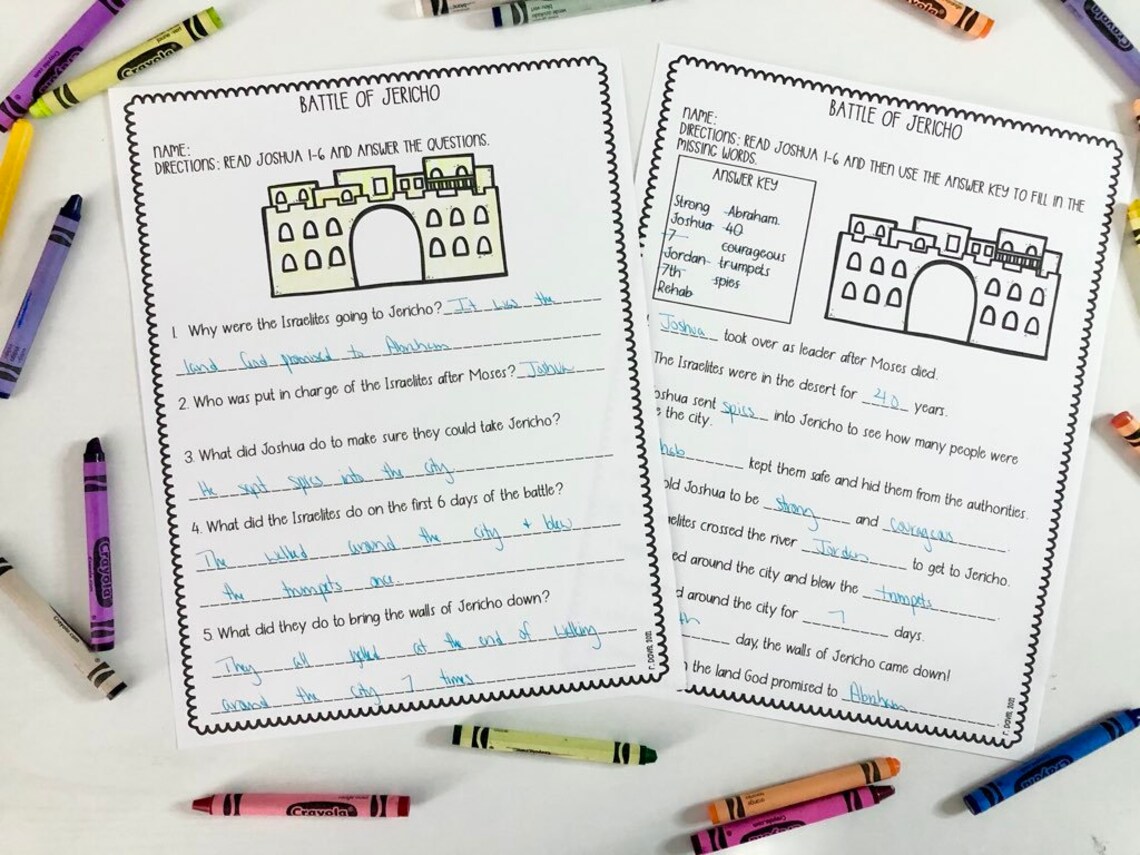 BATTLE OF JERICHO
NAME:
DIRECTIONS: READ JOSHUA 1-6 AND ANSWER THE QUESTIONS.
1. Why were the Israelites going to Jericho? It was the
land God promised to Abraham
2. Who was put in charge of the Israelites after Moses? Joshua
3. What did Joshua do to make sure they could take Jericho?
He sent spies into the city
4. What did the Israelites do on the first 6 days of the battle?
The walked around the city + blew
the trumpets once
5. What did they do to bring the walls of Jericho down?
They all yelled at the end of walking
around the city 7 times
BATTLE OF JERICHO
NAME:
DIRECTIONS: READ JOSHUA 1-6 AND THEN USE THE ANSWER KEY TO FILL IN THE
MISSING WORDS.
ANSWER KEY
Strong Abraham
Joshua 40
7 courageous
Jordan trumpets
7th spies
Rehab
Joshua took over as leader after Moses died.
The Israelites were in the desert for 40 years.
oshua sent spies into Jericho to see how many people were
the city.
hab kept them safe and hid them from the authorities.
old Joshua to be strong and courageous.
elites crossed the river Jordan to get to Jericho.
ed around the city and blew the trumpets.
d around the city for 7 days.
th day, the walls of Jericho came down!
n the land God promised to Abraham.
Crayola
Crayola
Crayola
Crayola